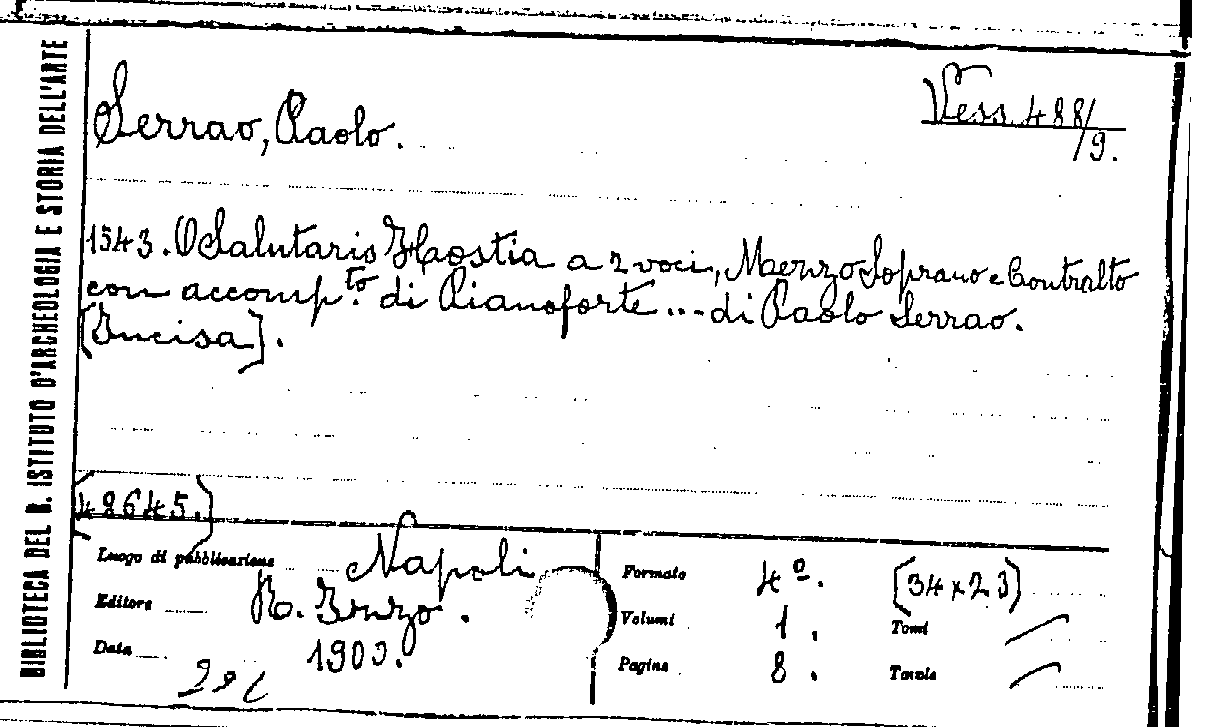 BIBLIOTECA DEL R. ISTITUTO D'ARCHEOLOGIA E STORIA DELL'ARTE
Serrao, Paolo.
Vess. 488/9.
1543. O Salutaris Hostia a 2 voci, Mezzo Soprano e Contralto
con accomp.to di Pianoforte ... di Paolo Serrao.
[Incisa].
(48645.)
Luogo di pubblicazione Napoli
Editore R. Izzo.
Data 1900.
Formato 4º. (34x23)
Volumi 1. Tomi
Pagine 8. Tavole